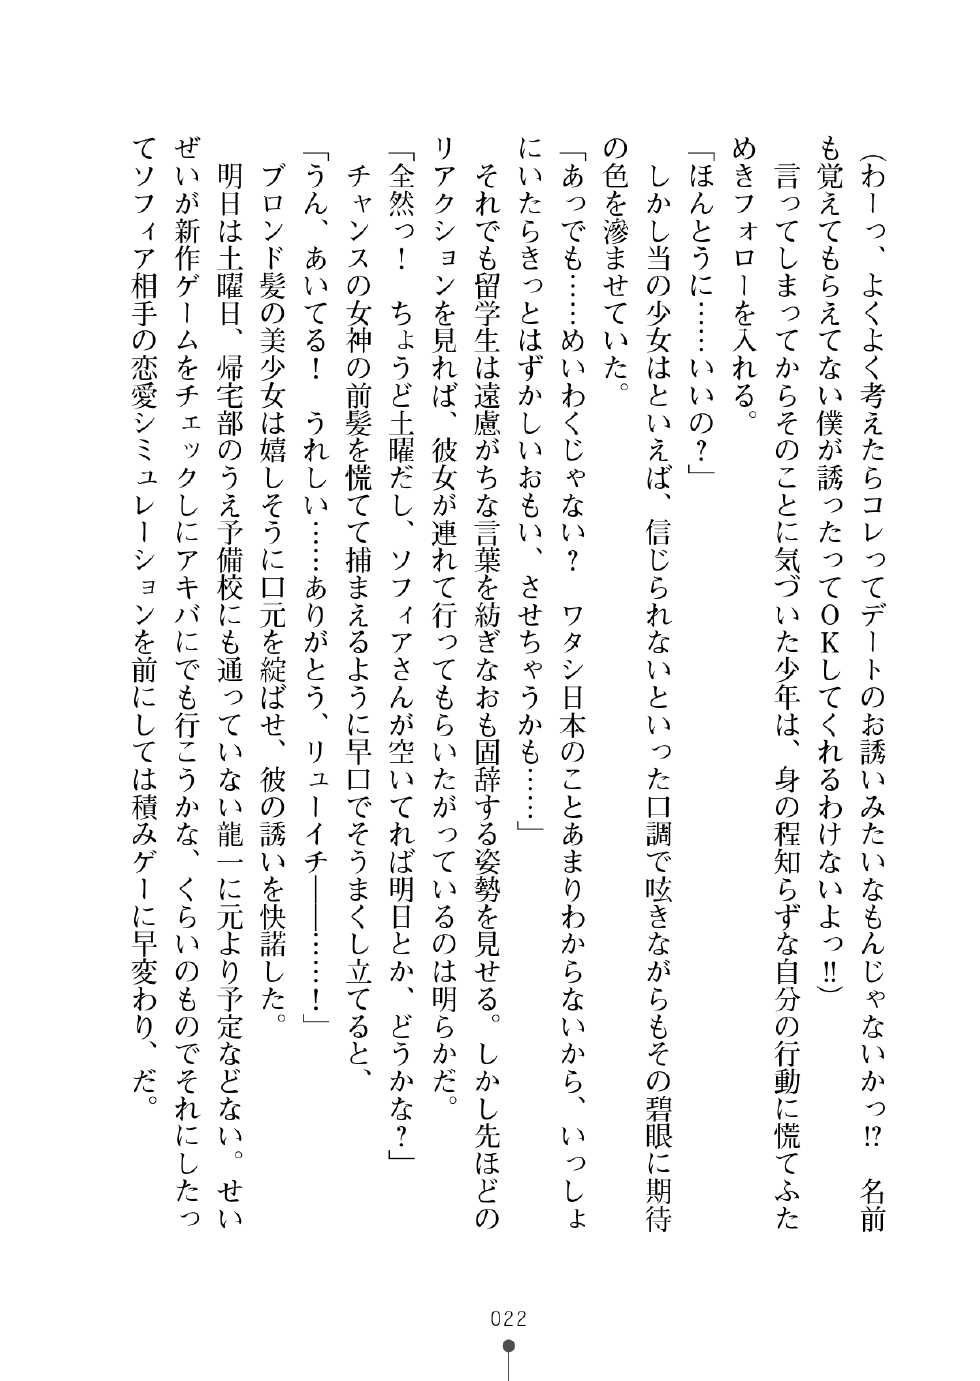 （わーっ、よくよく考えたらコレってデートのお誘いみたいなもんじゃないかっ!?　名前
も覚えてもらえてない僕が誘ったってＯＫしてくれるわけないよっ!!）
　言ってしまってからそのことに気づいた少年は、身の程知らずな自分の行動に慌てふた
めきフォローを入れる。
「ほんとうに……いいの？」
　しかし当の少女はといえば、信じられないといった口調で呟きながらもその碧眼に期待
の色を滲ませていた。
「あっでも……めいわくじゃない？　ワタシ日本のことあまりわからないから、いっしょ
にいたらきっとはずかしいおもい、させちゃうかも……」
　それでも留学生は遠慮がちな言葉を紡ぎなおも固辞する姿勢を見せる。しかし先ほどの
リアクションを見れば、彼女が連れて行ってもらいたがっているのは明らかだ。
「全然っ！　ちょうど土曜だし、ソフィアさんが空いてれば明日とか、どうかな？」
　チャンスの女神の前髪を慌てて捕まえるように早口でそうまくし立てると、
「うん、あいてる！　うれしい……ありがとう、リューイチ――……！」
　ブロンド髪の美少女は嬉しそうに口元を綻ばせ、彼の誘いを快諾した。
　明日は土曜日、帰宅部のうえ予備校にも通っていない龍一に元より予定などない。せい
ぜいが新作ゲームをチェックしにアキバにでも行こうかな、くらいのものでそれにしたっ
てソフィア相手の恋愛シミュレーションを前にしては積みゲーに早変わり、だ。
022